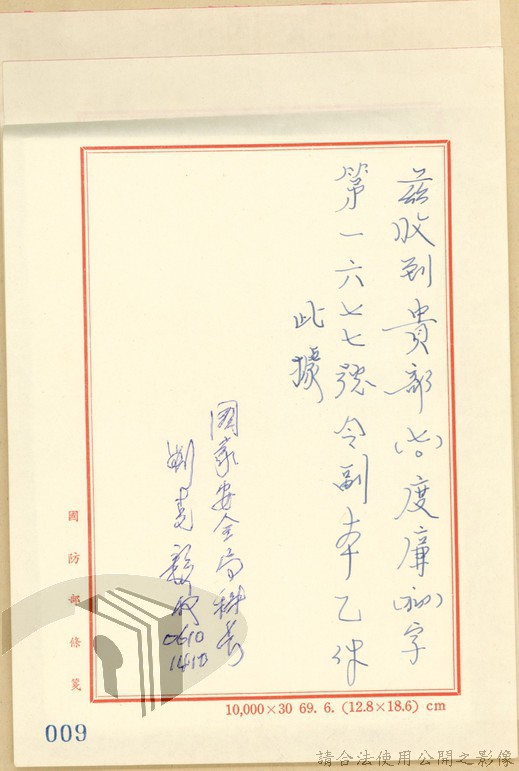 茲收到貴部(70)度廉(初)字
第一六七七號令副本乙件
此據
國家安全局
0610
1410
國防部條箋
10,000×30 69. 6. (12.8×18.6) cm
009
請合法使用公開之影像